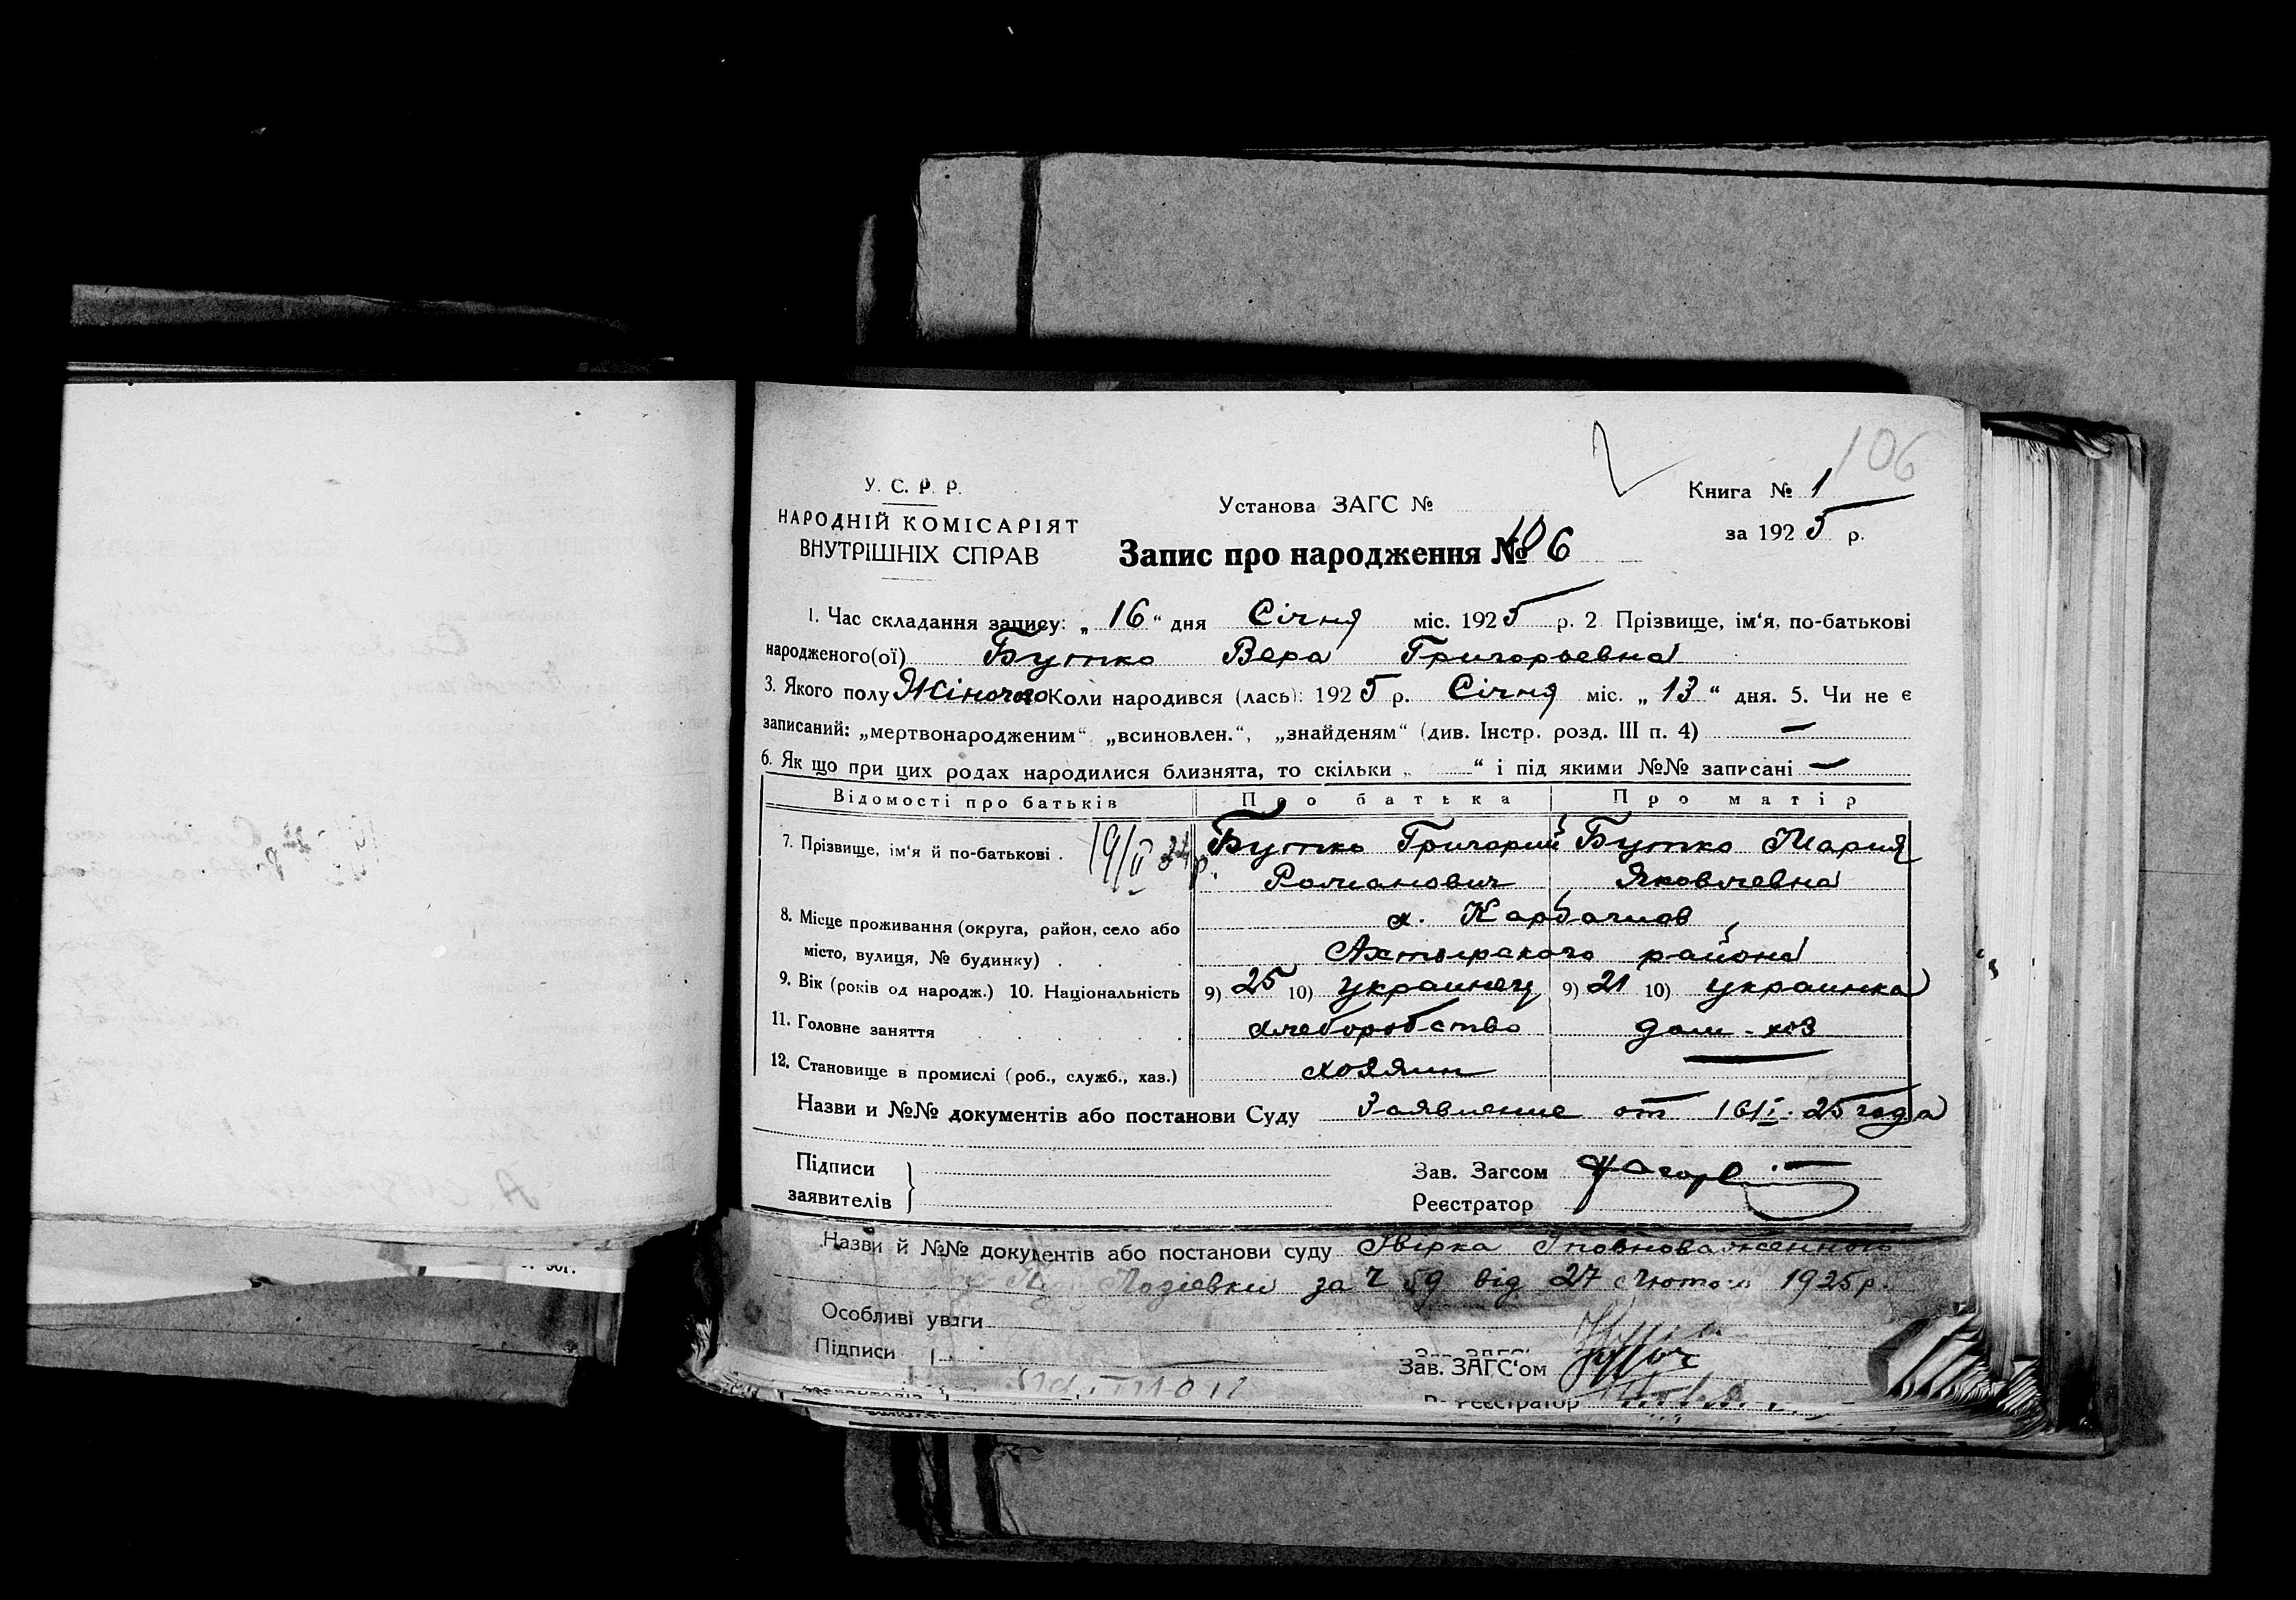 106
У. С. Р. Р.
НАРОДНІЙ КОМІСАРІЯТ
ВНУТРІШНІХ СПРАВ
Установа ЗАГС №
Книга № 1
за 1925 р.
Запис про народження № 106
1. Час складання запису: „ 16 “ дня Січня міс. 1925 р. 2 Прізвище, ім‘я, по-батькові
народженого(ої) Бутко Вера Григорьевна
3. Якого полу Жіночого Коли народився (лась): 1925 р. Січня міс. „ 13 “ дня. 5. Чи не є
записаний: „мертвонародженим“ „всиновлен.“, „знайденям“ (див. Інстр. розд. III п. 4) —
6. Як що при цих родах народилися близнята, то скільки „ “ і під якими №№ записані —
Відомості про батьків Про батька Про матір
7. Прізвище, ім‘я й по-батькові . 19/II 24 р. Бутко Григорий Бутко Мария
Романович Яковлевна
8. Місце проживання (округа, район, село або х. Карбачов
місто, вулиця, № будинку) . . . Ахтырского района
9. Вік (років од народж.) 10. Національність 9) 25 10) украинец 9) 21 10) украинка
11. Головне заняття хлеборобство дом-хоз
12. Становище в промислі (роб., служб., хаз.) хозяин —
Назви и №№ документів або постанови Суду Заявление от 16/I 25 года
Підписи
заявителів
Зав. Загсом
Реєстратор
Назви й №№ документів або постанови суду
за Ч 59 від 27 Лютого 1925р.
Особливі уваги
Підписи
Зав. ЗАГС‘ом
Реєстратор